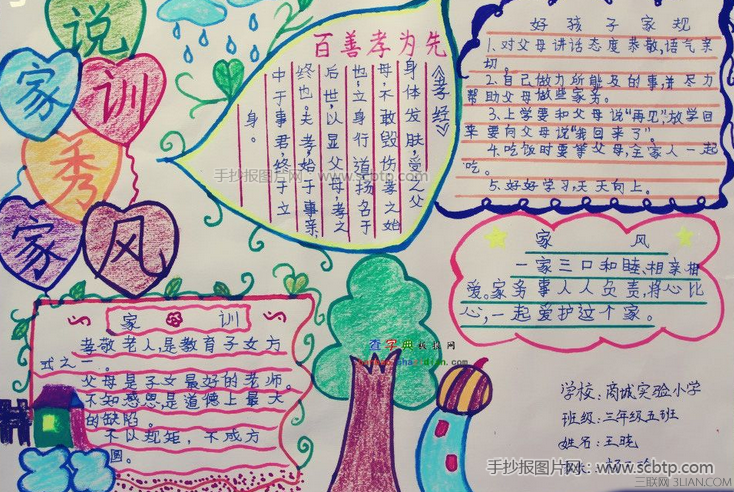 说
家训
秀
家风
百善孝为先
《孝经》
身体发肤,受之父
母,不敢毁伤,孝之始
也;立身行道,扬名于
后世,以显父母,孝之
终也。夫孝,始于事亲,
中于事君,终于立
身。
好孩子家规
1.对父母讲话态度恭敬,语气亲
切。
2.自己做力所能及的事,并尽力
帮助父母做些家务。
3.上学要和父母说“再见”,放学回
来要向父母说“我回来了”。
4.吃饭时要等父母,全家人一起
吃。
5.好好学习,天天向上。
家风
一家三口和睦,相亲相
爱。家务事人人负责,将心比
心,一起爱护这个家。
家训
孝敬老人,是教育子女方
式之一。
父母是子女最好的老师。
不知感恩,是道德上最大
的缺陷。
不以规矩,不成方
圆。
学校:商城实验小学
班级:三年级五班
姓名:王晓
手抄报图片网:www.scbtp.com
手抄报图片网:www.scbtp.com
查字典教程网
三联网 3LIAN.COM